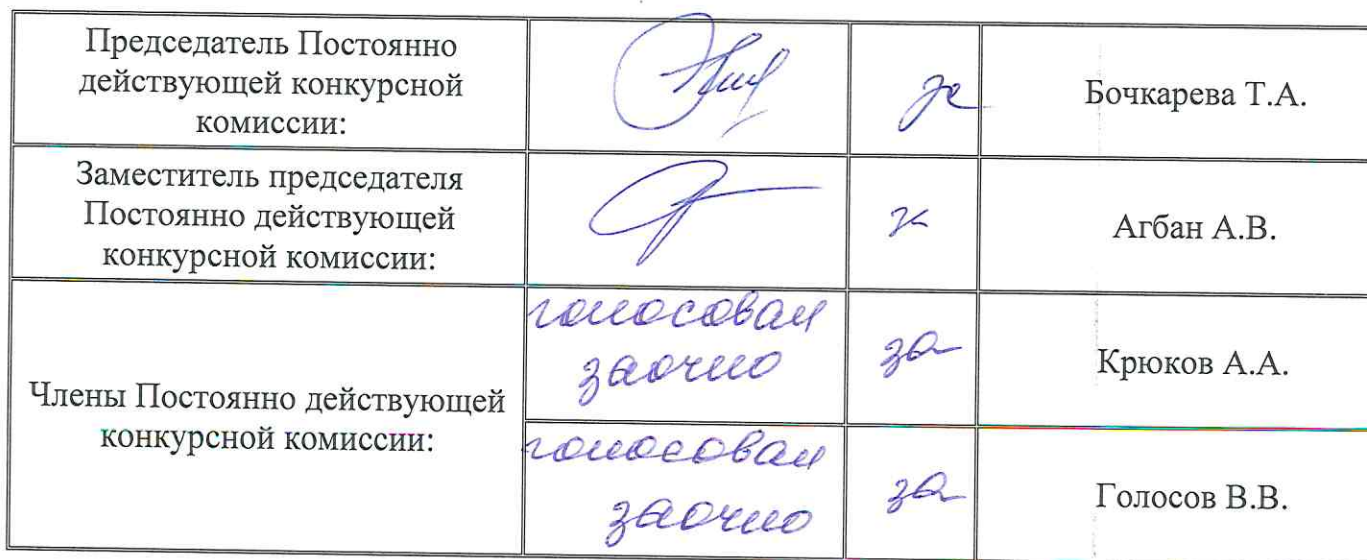 Председатель Постоянно
действующей конкурсной
комиссии:
за
Бочкарева Т.А.
Заместитель председателя
Постоянно действующей
конкурсной комиссии:
за
Агбан А.В.
Члены Постоянно действующей
конкурсной комиссии:
голосовал
заочно
за
Крюков А.А.
голосовал
заочно
за
Голосов В.В.